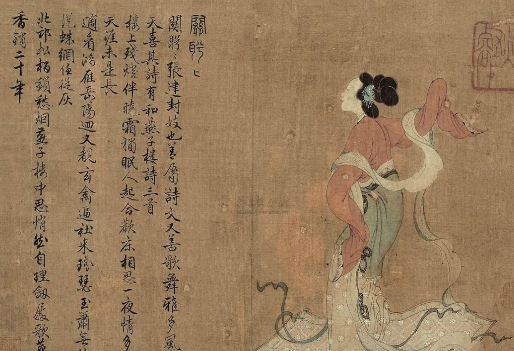 關盻〻
關盻張建封妓也善屬詩文又善歌舞雅多風
天喜其詩有和燕子樓詩三首
樓上殘燈伴曉霜獨眠人起合歡床相思一夜情多
天涯未是長
適看鴻雁岳陽迴又覩玄禽逼社來瑤瑟玉簫無
從蛛網任從灰
北邙松柏鎖愁烟燕子樓中思悄然自理劒履歌
香銷二十年